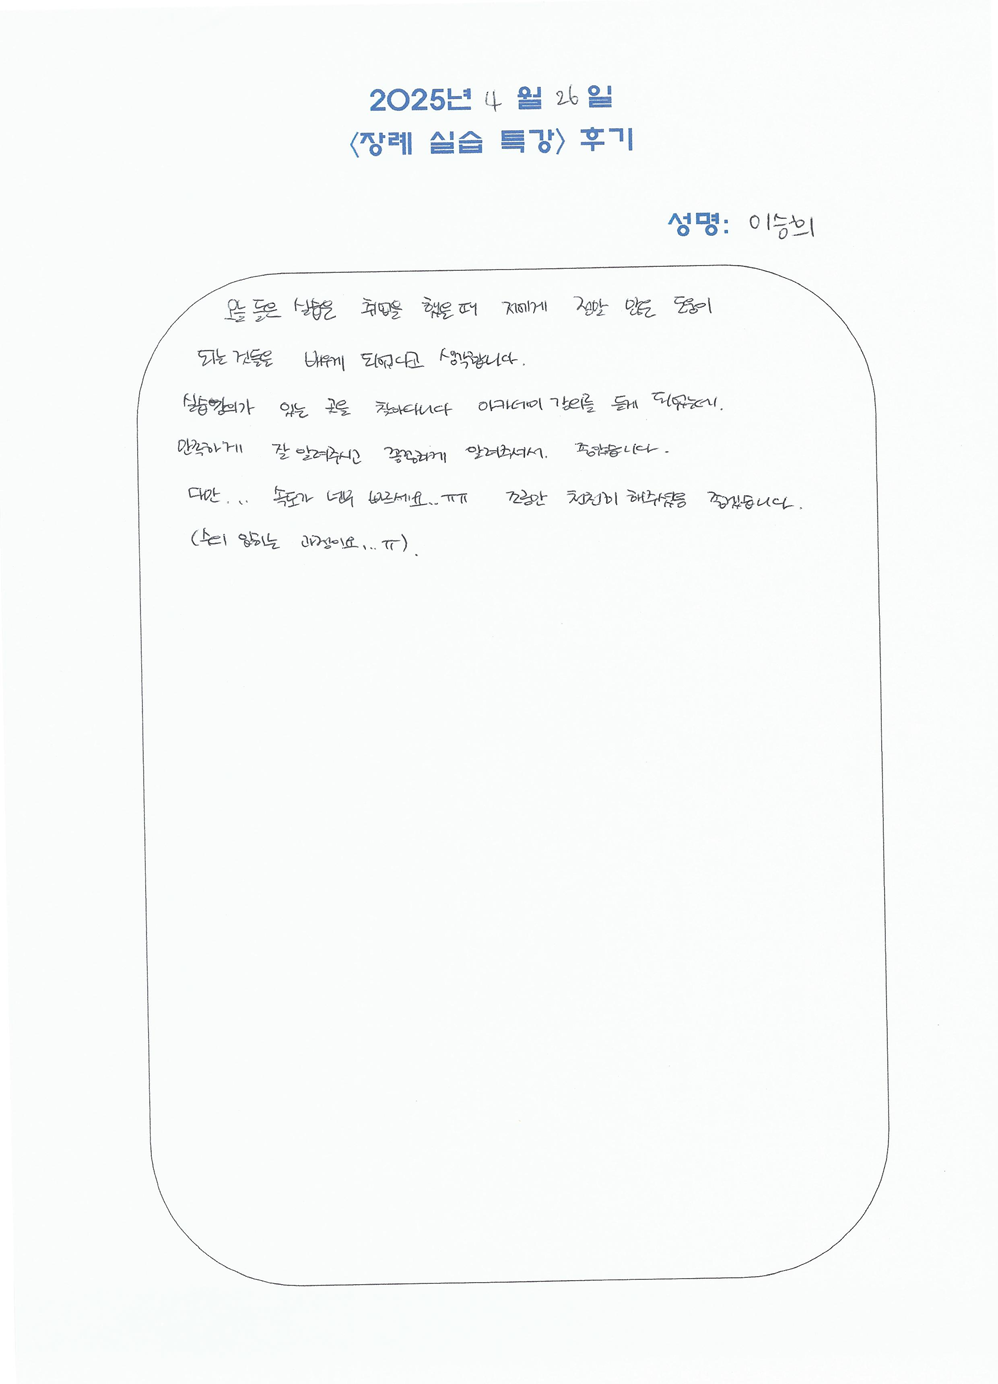 2025년 4 월 26 일
<장례 실습 특강> 후기
성명: 이승희
오늘 들은 실습은 취업을 했을 때 저에게 정말 많은 도움이
되는 것들을 배우게 되었다고 생각합니다.
실습강의가 있는 곳을 찾아다니다 아카데미 강의를 듣게 되었는데,
만족하게 잘 알려주시고 꼼꼼하게 알려주셔서 좋았습니다.
다만... 속도가 너무 빠르세요..ㅠㅠ 조금만 천천히 해주셨음 좋겠습니다.
(손이 안되는 과정이요...ㅠ).